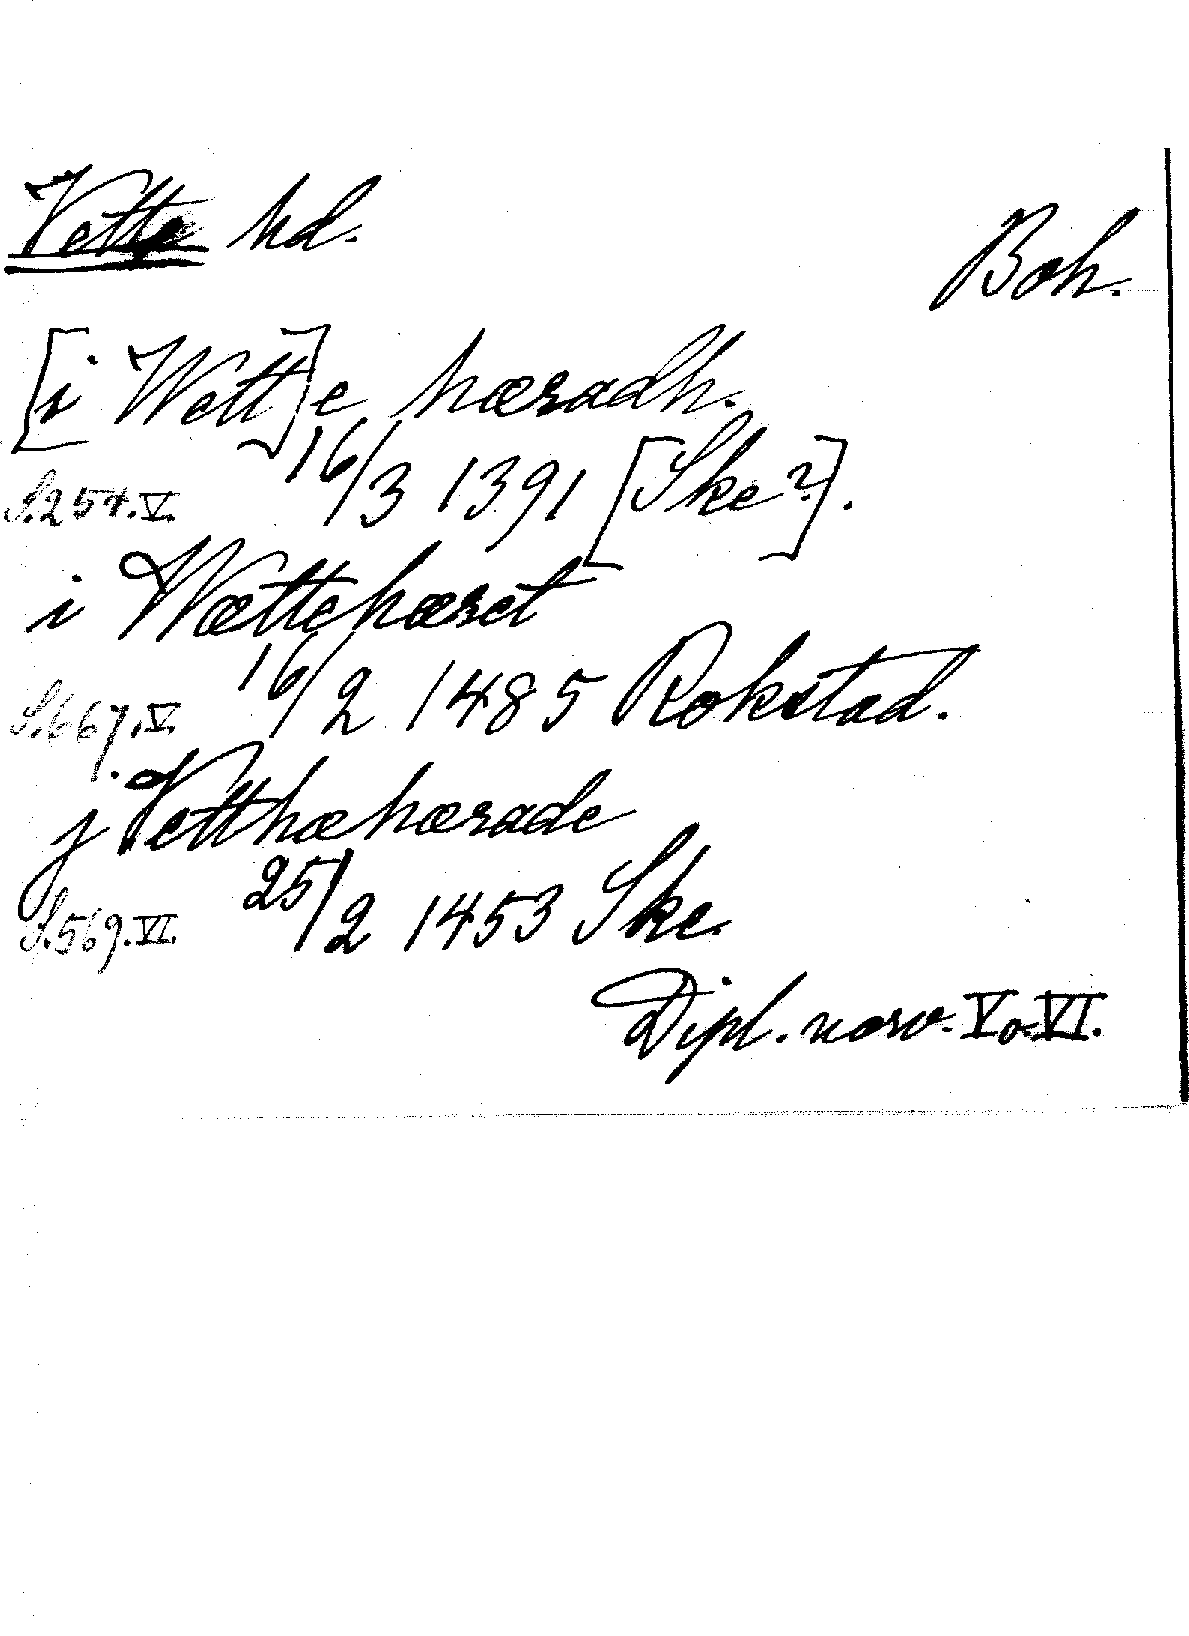 Vette hd.
Boh.
[i Wett]e hæradh.
S.254.V. 16/3 1391 [Ske?].
i Wættehæret
S.667.V. 16/2 1485 Rokstad.
j Vetthæhærade
S.569.VI. 25/2 1453 Ske.
Dipl. norv. V o. VI.